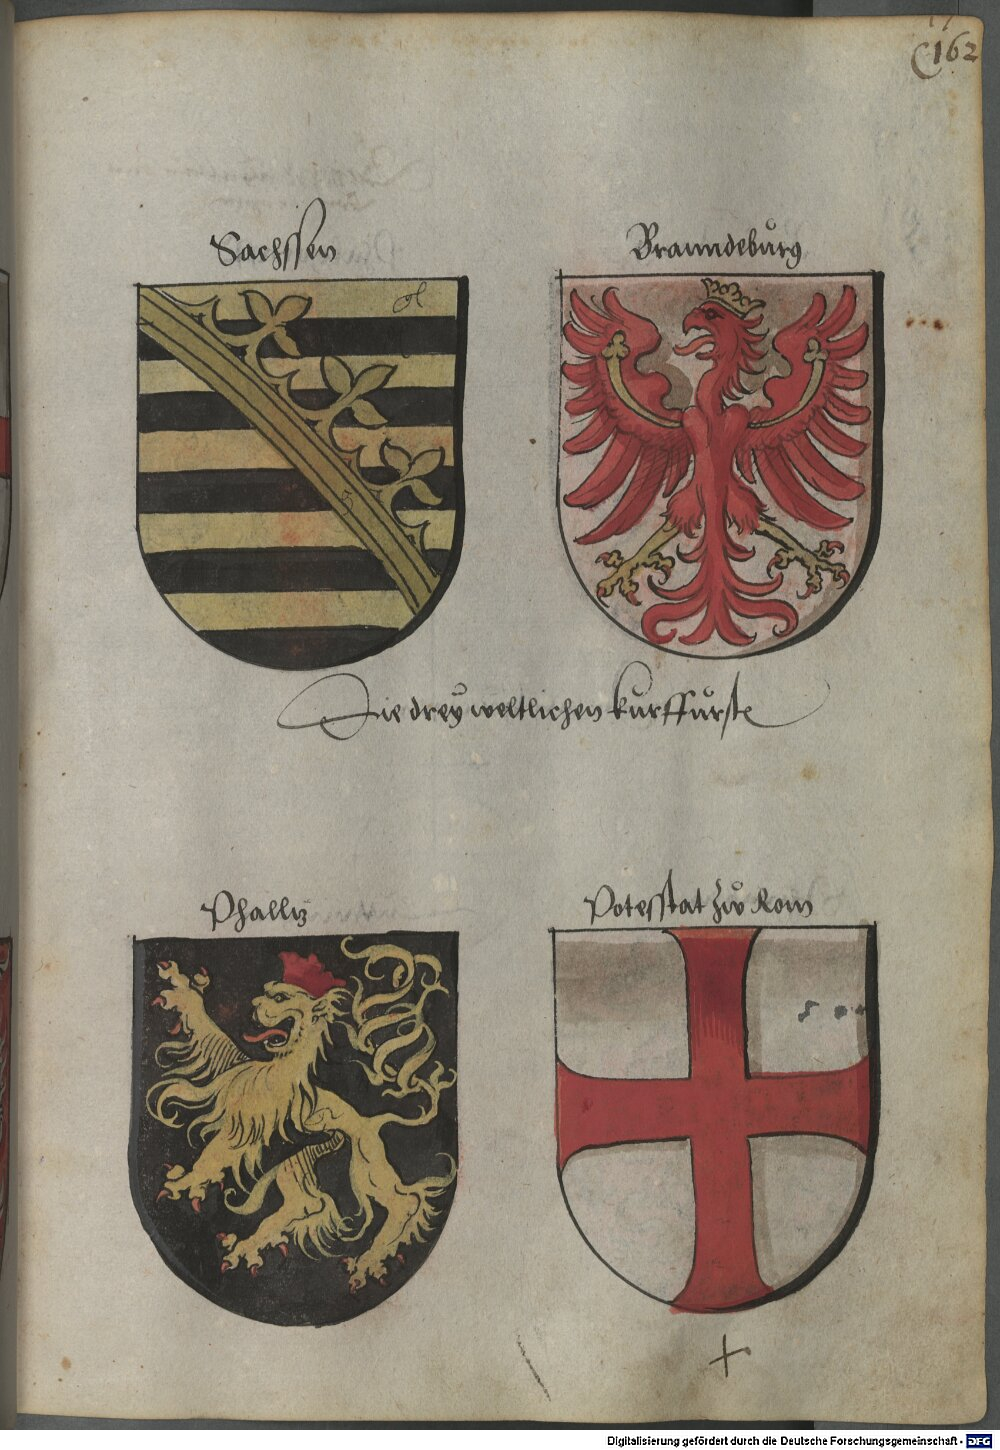 162
Sachssen
Branndeburg
gl
Die drey weltlichen kurffurste
Phalltz
Potesstat zw Rom
Digitalisierung gefördert durch die Deutsche Forschungsgemeinschaft - DFG